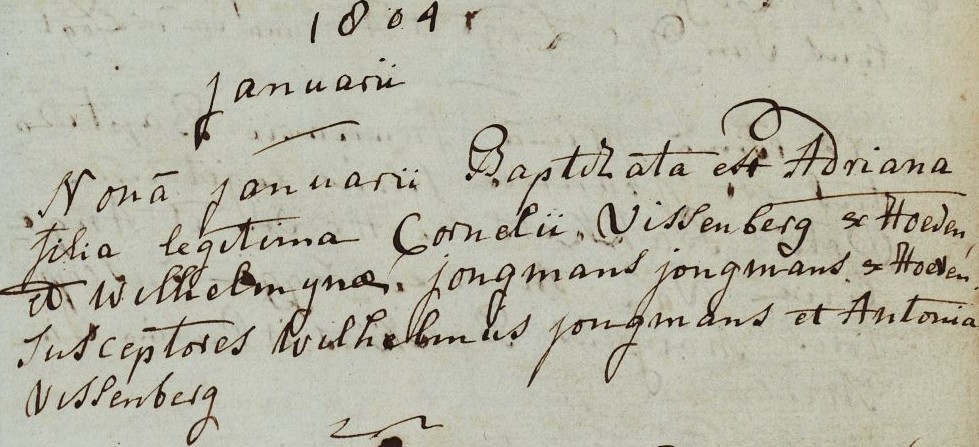 1804
januarii
Nonā januarii Baptizata est Adriana
filia legitima Cornelii Vissenberg ex Hoeven,
et Wilhelmynæ jongmans jongmans ex Hoeven.
Susceptores Wilhelmus jongmans et Antonia
Vissenberg